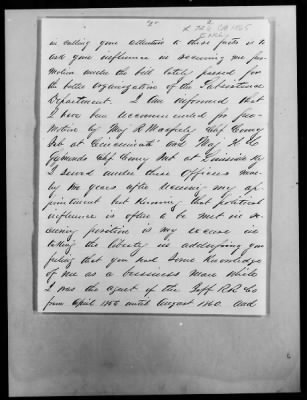 "2"
2
in calling your attention to these facts is to
ask your influence in securing my pro-
motion under the bill lately passed for
the better organization of the Subsistence
Department. I am informed that
I have been recommended for pro-
motion by Maj Chf Comy
Sub at Cincinnati and Maj H C
Symonds Chf Comy Sub at Louisville Ky
I served under these officers near-
ly two years after receiving my ap-
pointment but knowing that political
influence is often to be met in se-
curing position is my excuse in
taking the liberty in addressing you
feeling that you had some knowledge
of me as a business man while
I was the agent of the Jeff R.R. Co
from April 1856 until August 1860. and